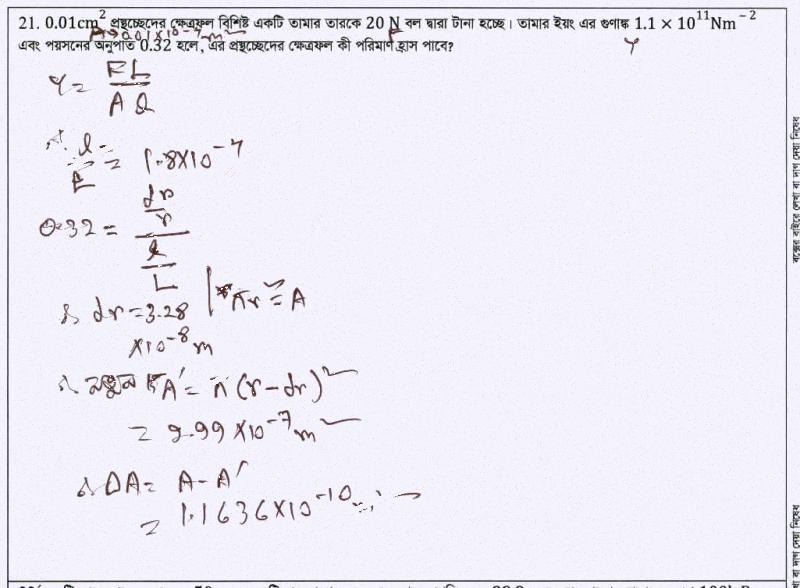 21. 0.01cm² প্রস্থচ্ছেদের ক্ষেত্রফল বিশিষ্ট একটি তামার তারকে 20 N বল দ্বারা টানা হচ্ছে। তামার ইয়ং এর গুণাঙ্ক 1.1 × 10¹¹Nm⁻²
এবং পয়সনের অনুপাত 0.32 হলে, এর প্রস্থচ্ছেদের ক্ষেত্রফল কী পরিমাণ হ্রাস পাবে?
F
Y
Y = FL / A l
l / L = 1.8×10⁻⁴
0.32 = (dr / r) / (l / L)
∴ dr = 3.28 ×10⁻⁸ m | πr² = A
∴ নতুন A' = π (r - dr)²
= 9.99 ×10⁻⁷ m²
∴ ΔA = A - A'
= 1.1636×10⁻¹⁰
বক্সের বাইরে লেখা বা দাগ দেয়া নিষেধ